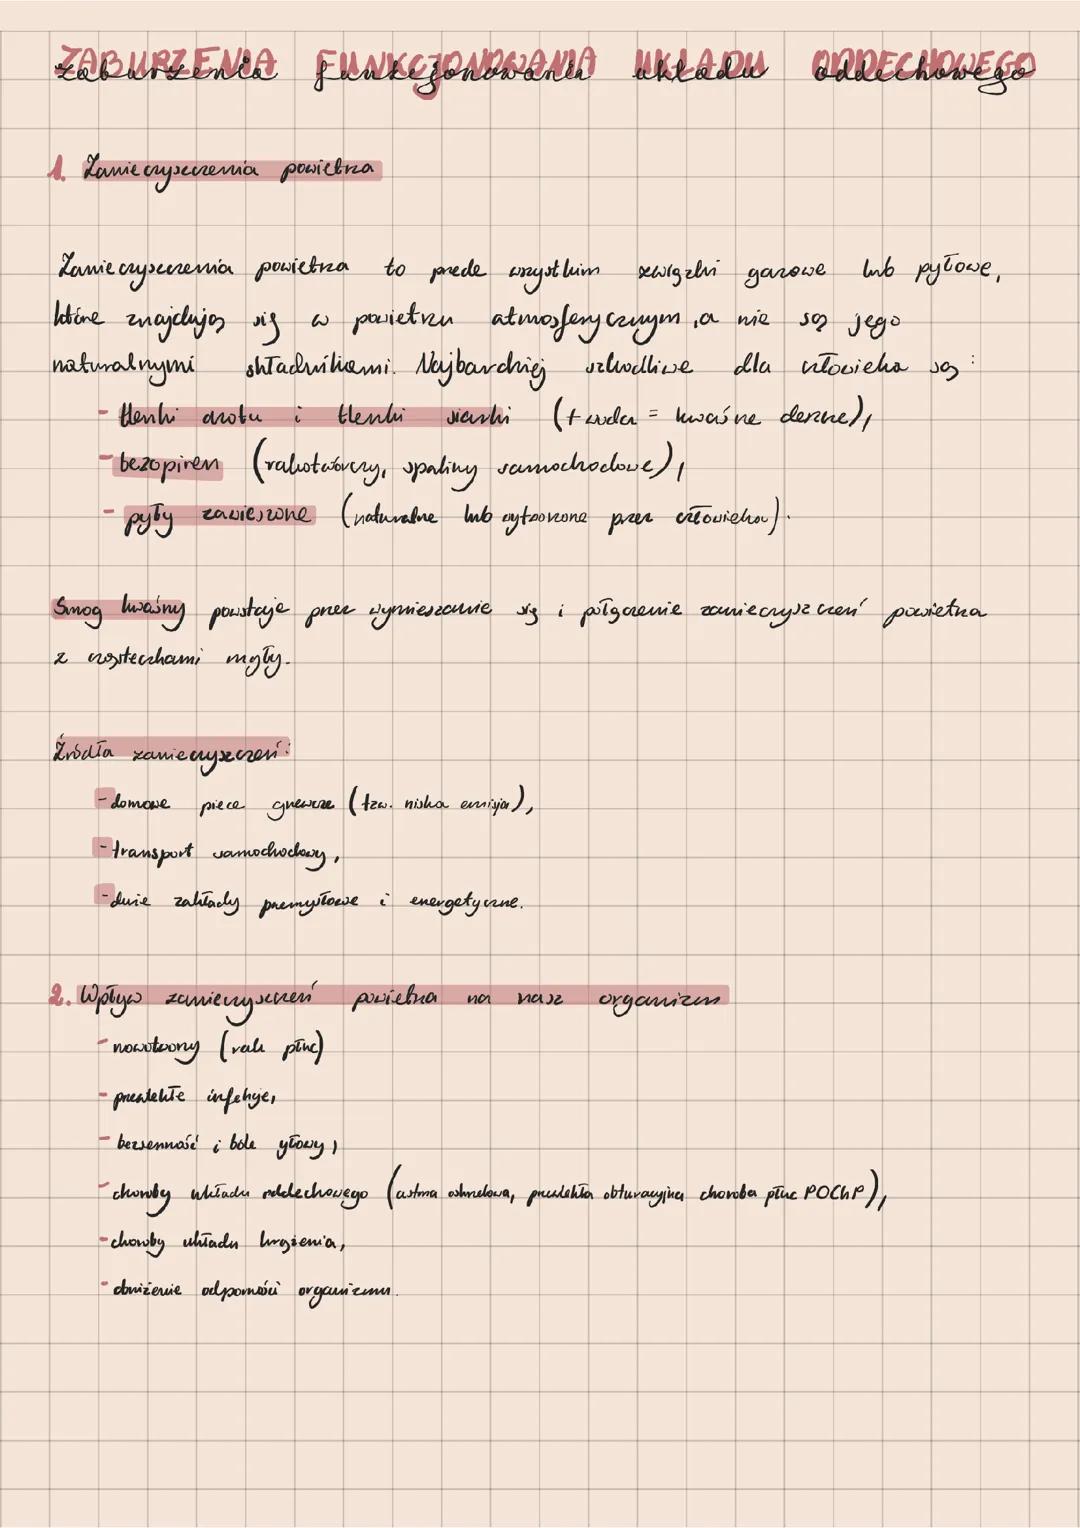 ZABURZENIA FUNKCJONOWANIA UKŁADU ODDECHOWEGO
zaburzenia funkcjonowania układu oddechowego
1. Zanieczyszczenia powietrza
Zanieczyszczenia powietrza to przede wszystkim związki gazowe lub pyłowe,
które znajdują się w powietrzu atmosferycznym, a nie są jego
naturalnymi składnikami. Najbardziej szkodliwe dla człowieka są:
- tlenki azotu i tlenki siarki (+ woda = kwaśne deszcze),
- bezopiren (rakotwórczy, spaliny samochodowe),
- pyły zawieszone (naturalne lub wytworzone przez człowieka).
Smog kwaśny powstaje przez wymieszanie się i połączenie zanieczyszczeń powietrza
z cząsteczkami mgły.
Źródła zanieczyszczeń:
- domowe piece grzewcze (tzw. niska emisja),
- transport samochodowy,
- duże zakłady przemysłowe i energetyczne.
2. Wpływ zanieczyszczeń powietrza na nasz organizm
- nowotwory (rak płuc)
- przewlekłe infekcje,
- bezsenność i bóle głowy,
- choroby układu oddechowego (astma oskrzelowa, przewlekła obturacyjna choroba płuc POChP),
- choroby układu krążenia,
- obniżenie odporności organizmu.